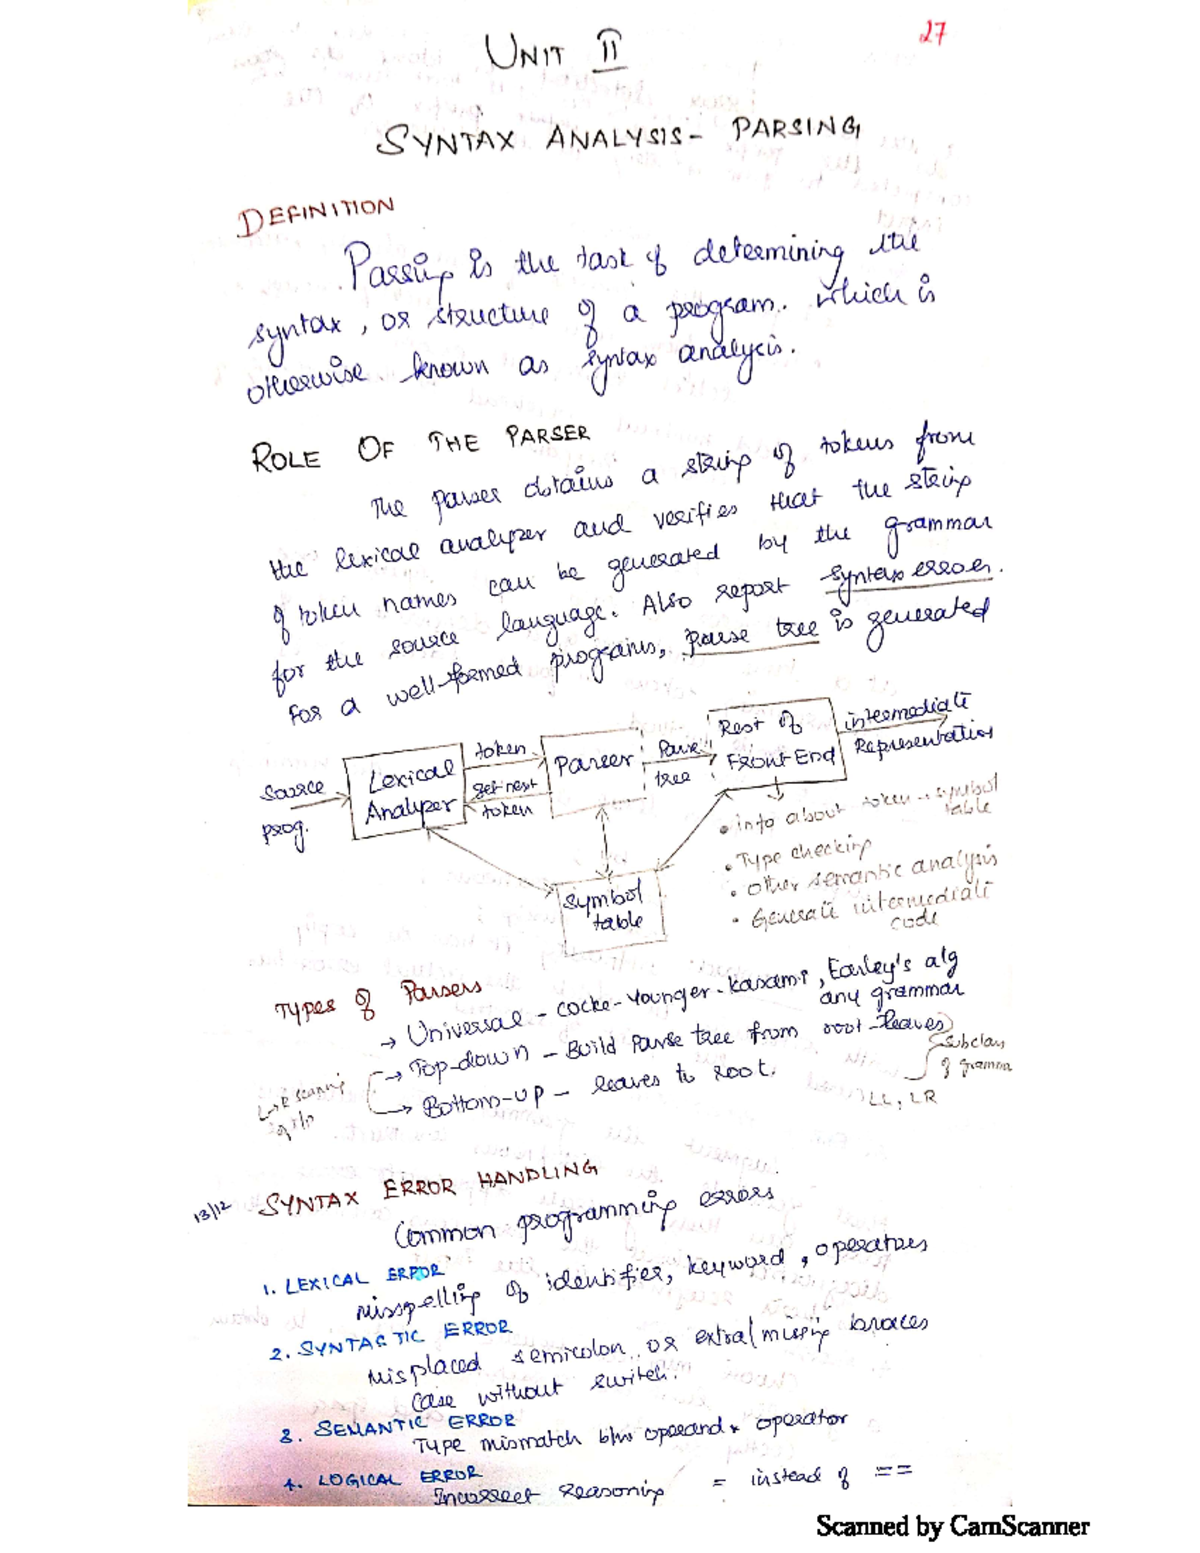 27
UNIT II
SYNTAX ANALYSIS - PARSING
DEFINITION
Parsing is the task of determining the
syntax, or structure of a program. which is
otherwise known as syntax analysis.
ROLE OF THE PARSER
The parser obtains a string of tokens from
the lexical analyzer and verifies that the string
of token names can be generated by the grammar
for the source language. Also report syntax error.
For a well-formed programs, parse tree is generated
source
prog.
Lexical
Analyzer
token
get next
token
Parser
Parse
tree
Rest of
Front End
intermediate
Representation
symbol
table
• info about token → symbol
table
• Type checking
• Other semantic analysis
• Generate intermediate
code
Types of Parsers
→ Universal - Cocke-Younger-Kasami, Earley's alg
any grammar
→ Top-down - Build Parse tree from root-leaves
→ Bottom-up - leaves to root.
L→R scanning
of i/p
Subclass
of gramma
LL, LR
13/12
SYNTAX ERROR HANDLING
Common programming errors
1. LEXICAL ERROR
misspelling of identifier, keyword, operators
2. SYNTACTIC ERROR
misplaced semicolon or extra/missing braces
Case without switch.
3. SEMANTIC ERROR
Type mismatch b/w operand & operator
4. LOGICAL ERROR
Incorrect reasoning = instead of ==
Scanned by CamScanner